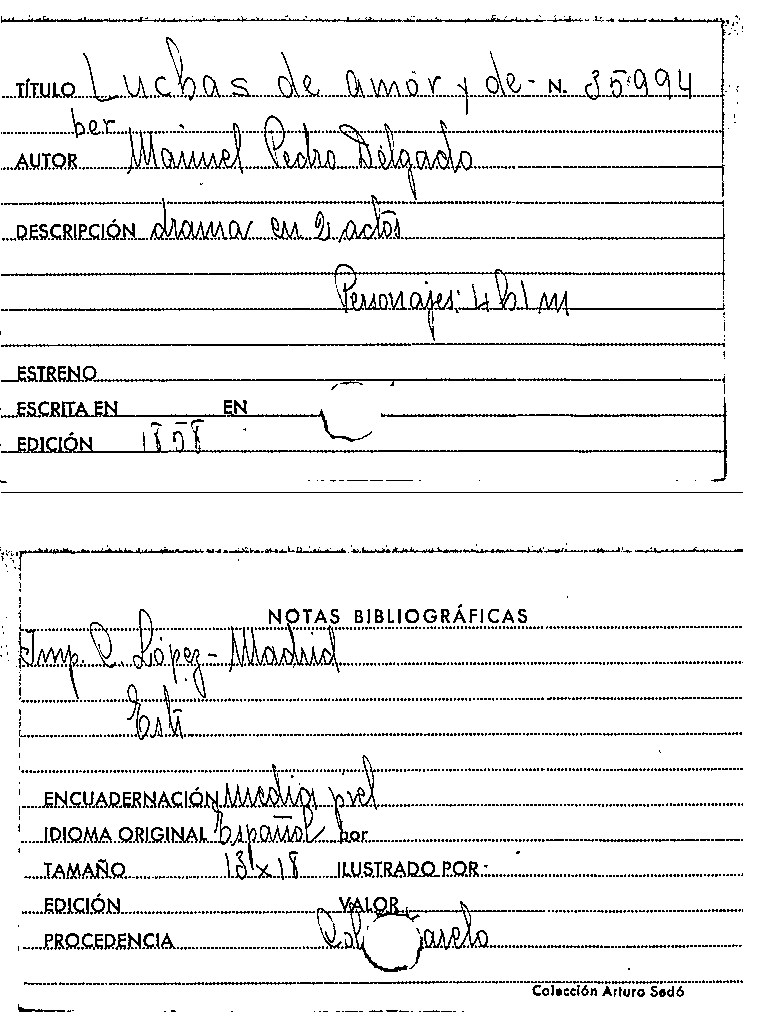 TÍTULO Luchas de amor y de- N. 35994
ber
AUTOR Manuel Pedro Delgado
DESCRIPCIÓN drama en 2 actos
Personajes: 4 h 1 m
ESTRENO
ESCRITA EN EN
EDICIÓN 1858
NOTAS BIBLIOGRÁFICAS
Imp. C. López - Madrid
ENCUADERNACIÓN media piel
IDIOMA ORIGINAL Español por
TAMAÑO 13 x 18 ILUSTRADO POR
EDICIÓN VALOR
PROCEDENCIA
Colección Arturo Sedó